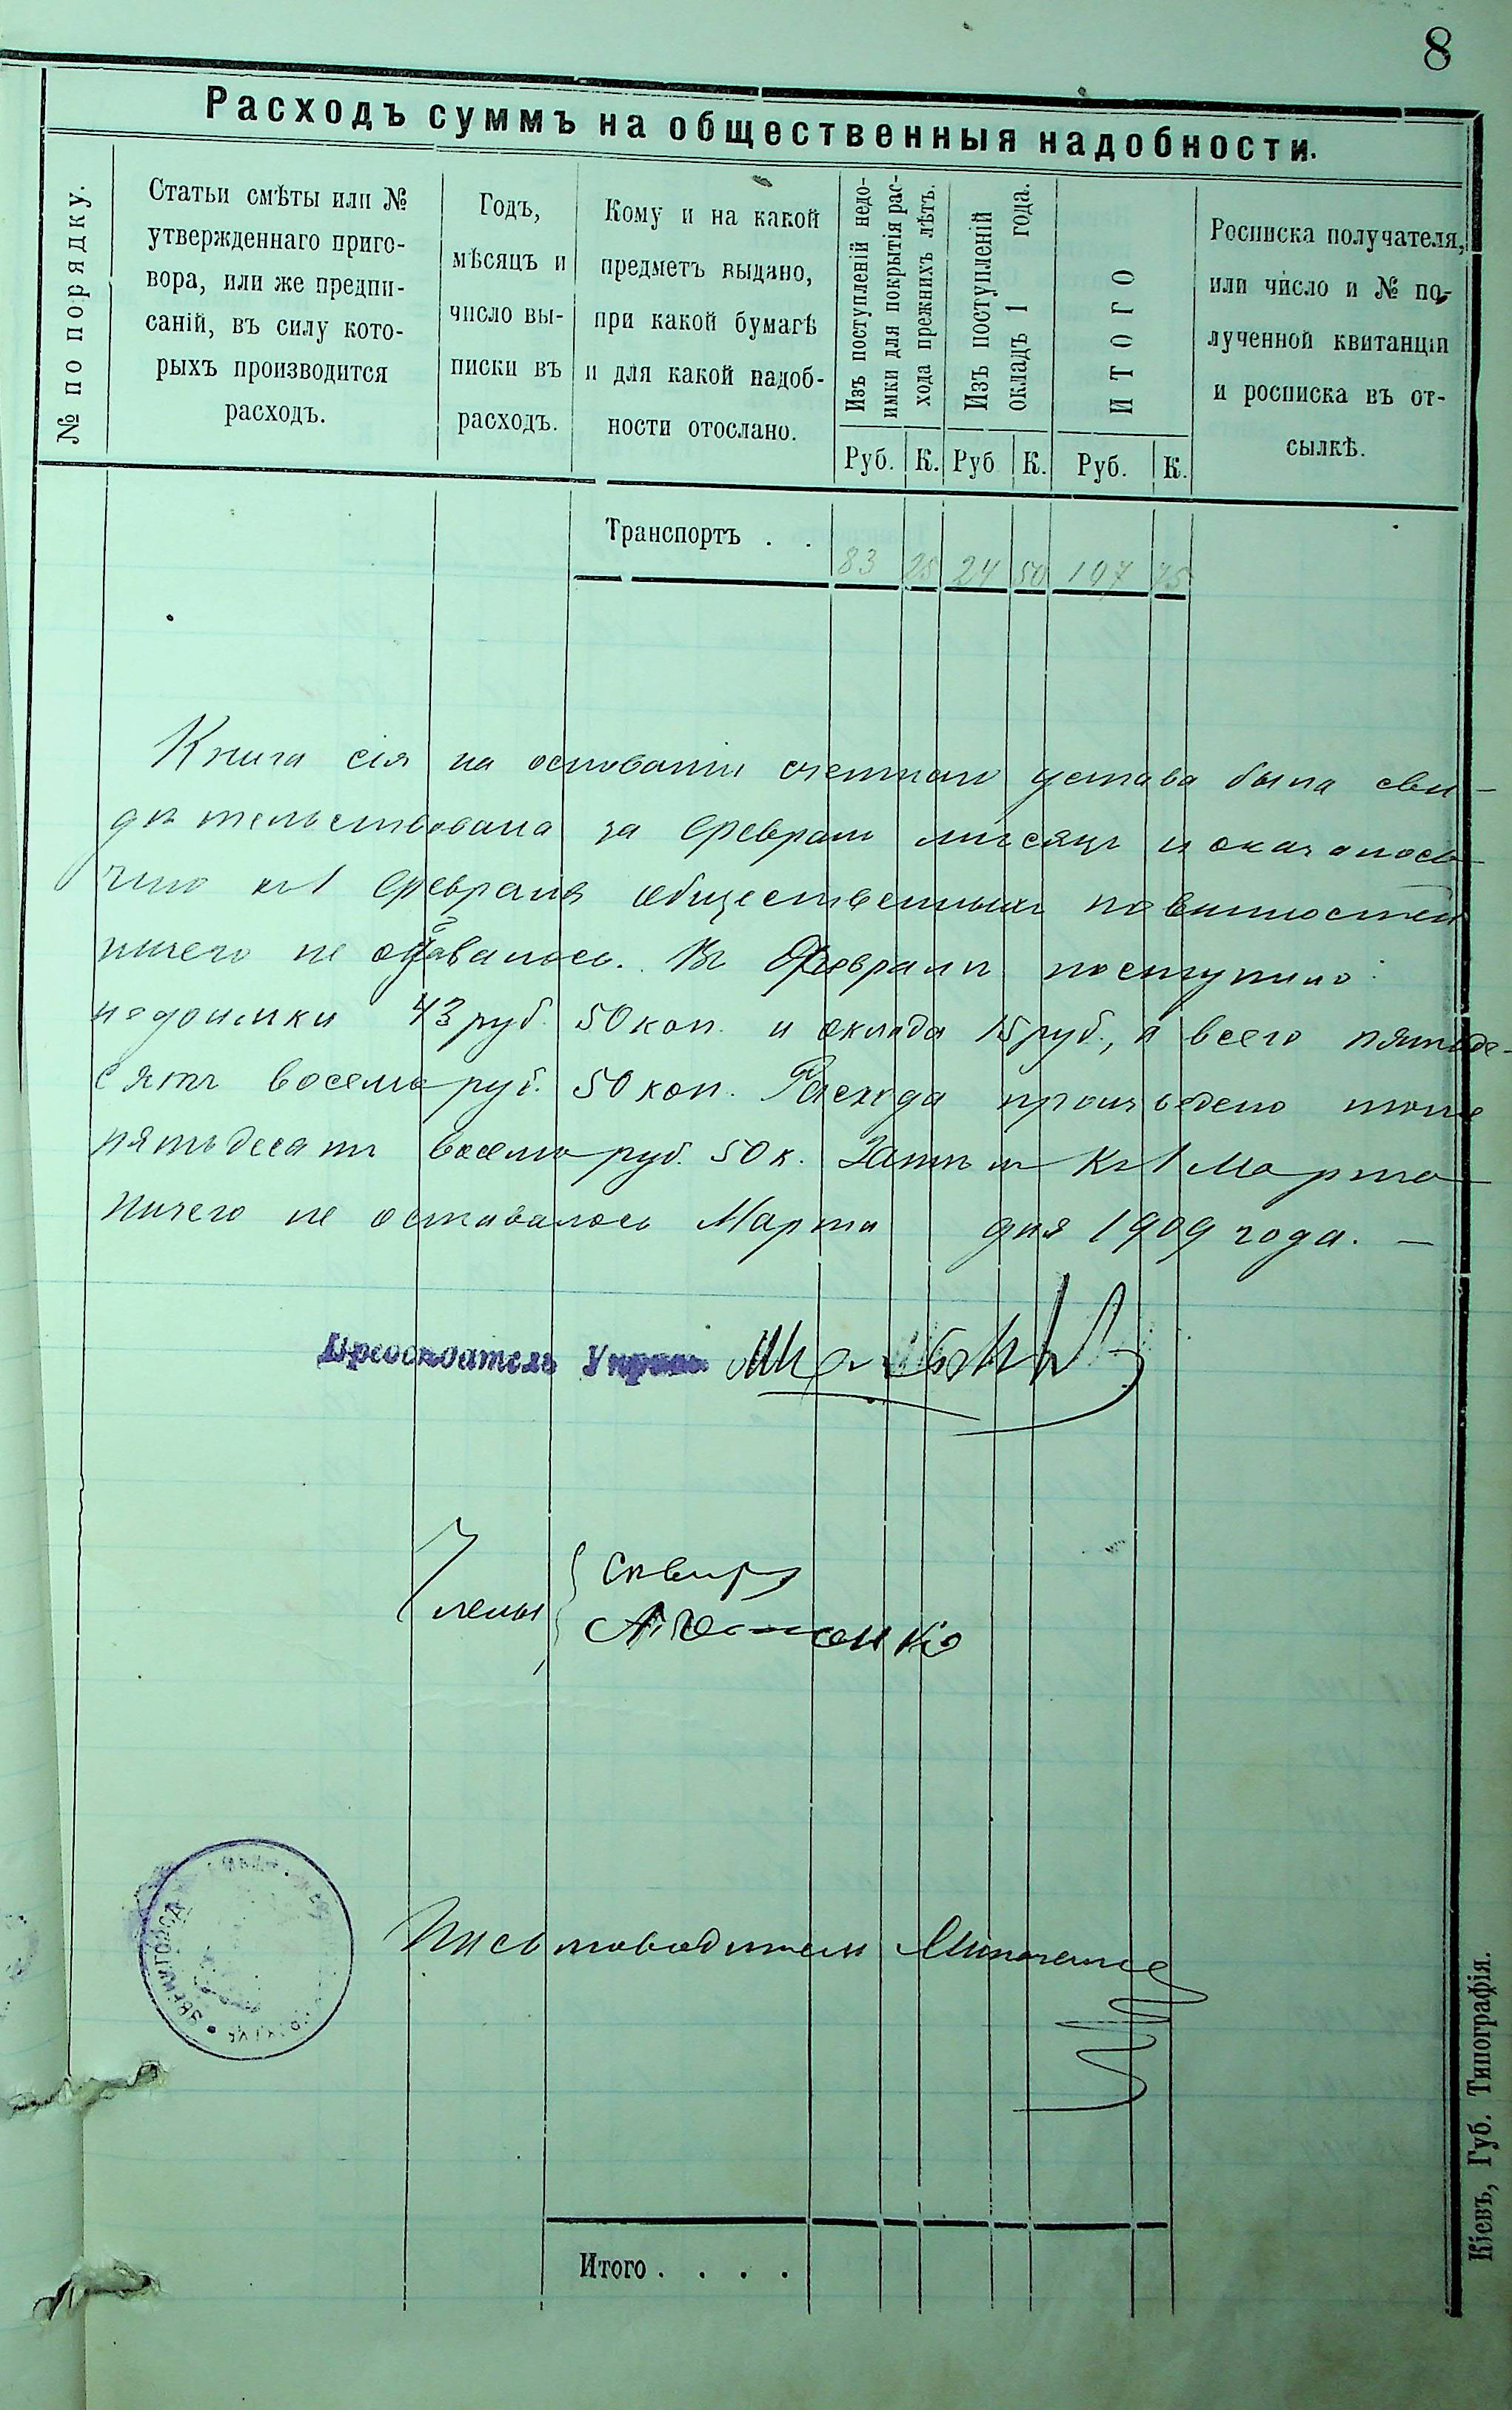 8
Расходъ суммъ на общественныя надобности.
№ по порядку.
Статьи смѣты или №
утвержденнаго приго-
вора, или же предпи-
саній, въ силу кото-
рыхъ производится
расходъ.
Годъ,
мѣсяцъ и
число вы-
писки въ
расходъ.
Кому и на какой
предметъ выдано,
при какой бумагѣ
и для какой надоб-
ности отослано.
Изъ поступленій недо-
имки для покрытія рас-
хода прежнихъ лѣтъ.
Изъ поступленій
окладъ 1 года.
ИТОГО
Росписка получателя,
или число и № по-
лученной квитанціи
и росписка въ от-
сылкѣ.
Руб. К. Руб К. Руб. К.
Транспортъ . . 83 25 24 50 107 75
Книга сія на основаніи счетнаго устава была сви-
дѣтельствована за Февраль мѣсяцъ и оказалось
что къ 1 Февраля общественныхъ повинностей
ничего не оставалось. Въ Февралѣ поступило:
недоимки 43 руб. 50 коп. и оклада 15 руб., а всего пятьде-
сятъ восемь руб. 50 коп. Расхода произведено тоже
пятьдесятъ восемь руб. 50 к. Затѣмъ къ 1 Марта
ничего не оставалось Марта дня 1909 года. —
Предсѣдатель Управы
Члены
Письмоводитель
Итого . . . .
Кіевъ, Губ. Типографія.